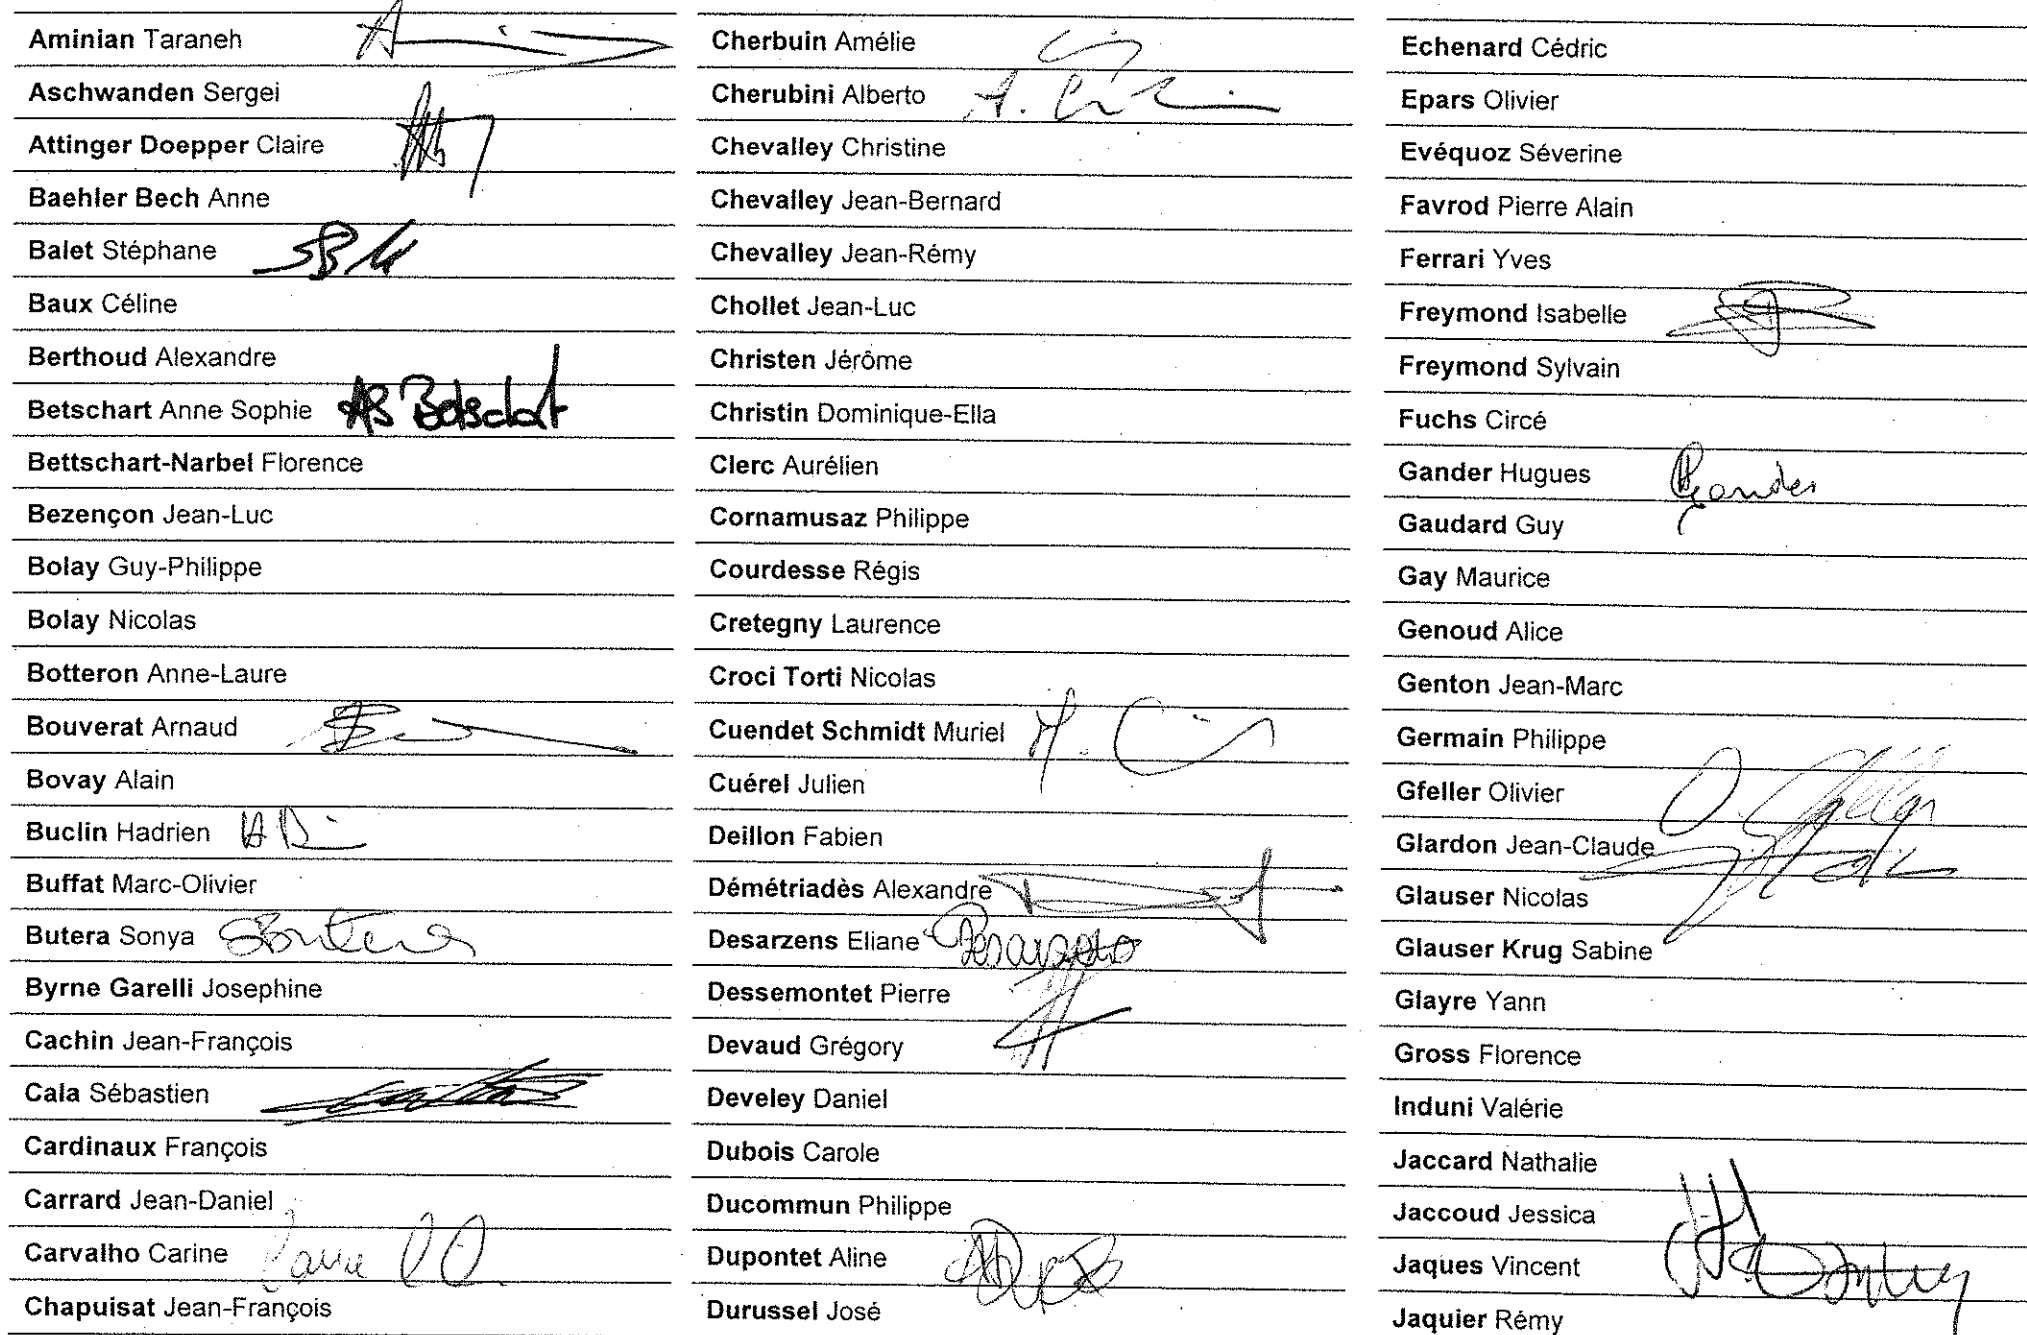 Aminian Taraneh
Aschwanden Sergei
Attinger Doepper Claire
Baehler Bech Anne
Balet Stéphane
Baux Céline
Berthoud Alexandre
Betschart Anne Sophie AS Betschart
Bettschart-Narbel Florence
Bezençon Jean-Luc
Bolay Guy-Philippe
Bolay Nicolas
Botteron Anne-Laure
Bouverat Arnaud
Bovay Alain
Buclin Hadrien
Buffat Marc-Olivier
Butera Sonya
Byrne Garelli Josephine
Cachin Jean-François
Cala Sébastien
Cardinaux François
Carrard Jean-Daniel
Carvalho Carine
Chapuisat Jean-François
Cherbuin Amélie
Cherubini Alberto
Chevalley Christine
Chevalley Jean-Bernard
Chevalley Jean-Rémy
Chollet Jean-Luc
Christen Jérôme
Christin Dominique-Ella
Clerc Aurélien
Cornamusaz Philippe
Courdesse Régis
Cretegny Laurence
Croci Torti Nicolas
Cuendet Schmidt Muriel
Cuérel Julien
Deillon Fabien
Démétriadès Alexandre
Desarzens Eliane
Dessemontet Pierre
Devaud Grégory
Develey Daniel
Dubois Carole
Ducommun Philippe
Dupontet Aline
Durussel José
Echenard Cédric
Epars Olivier
Evéquoz Séverine
Favrod Pierre Alain
Ferrari Yves
Freymond Isabelle
Freymond Sylvain
Fuchs Circé
Gander Hugues Gander
Gaudard Guy
Gay Maurice
Genoud Alice
Genton Jean-Marc
Germain Philippe
Gfeller Olivier O. Gfeller
Glardon Jean-Claude
Glauser Nicolas
Glauser Krug Sabine
Glayre Yann
Gross Florence
Induni Valérie
Jaccard Nathalie
Jaccoud Jessica
Jaques Vincent
Jaquier Rémy